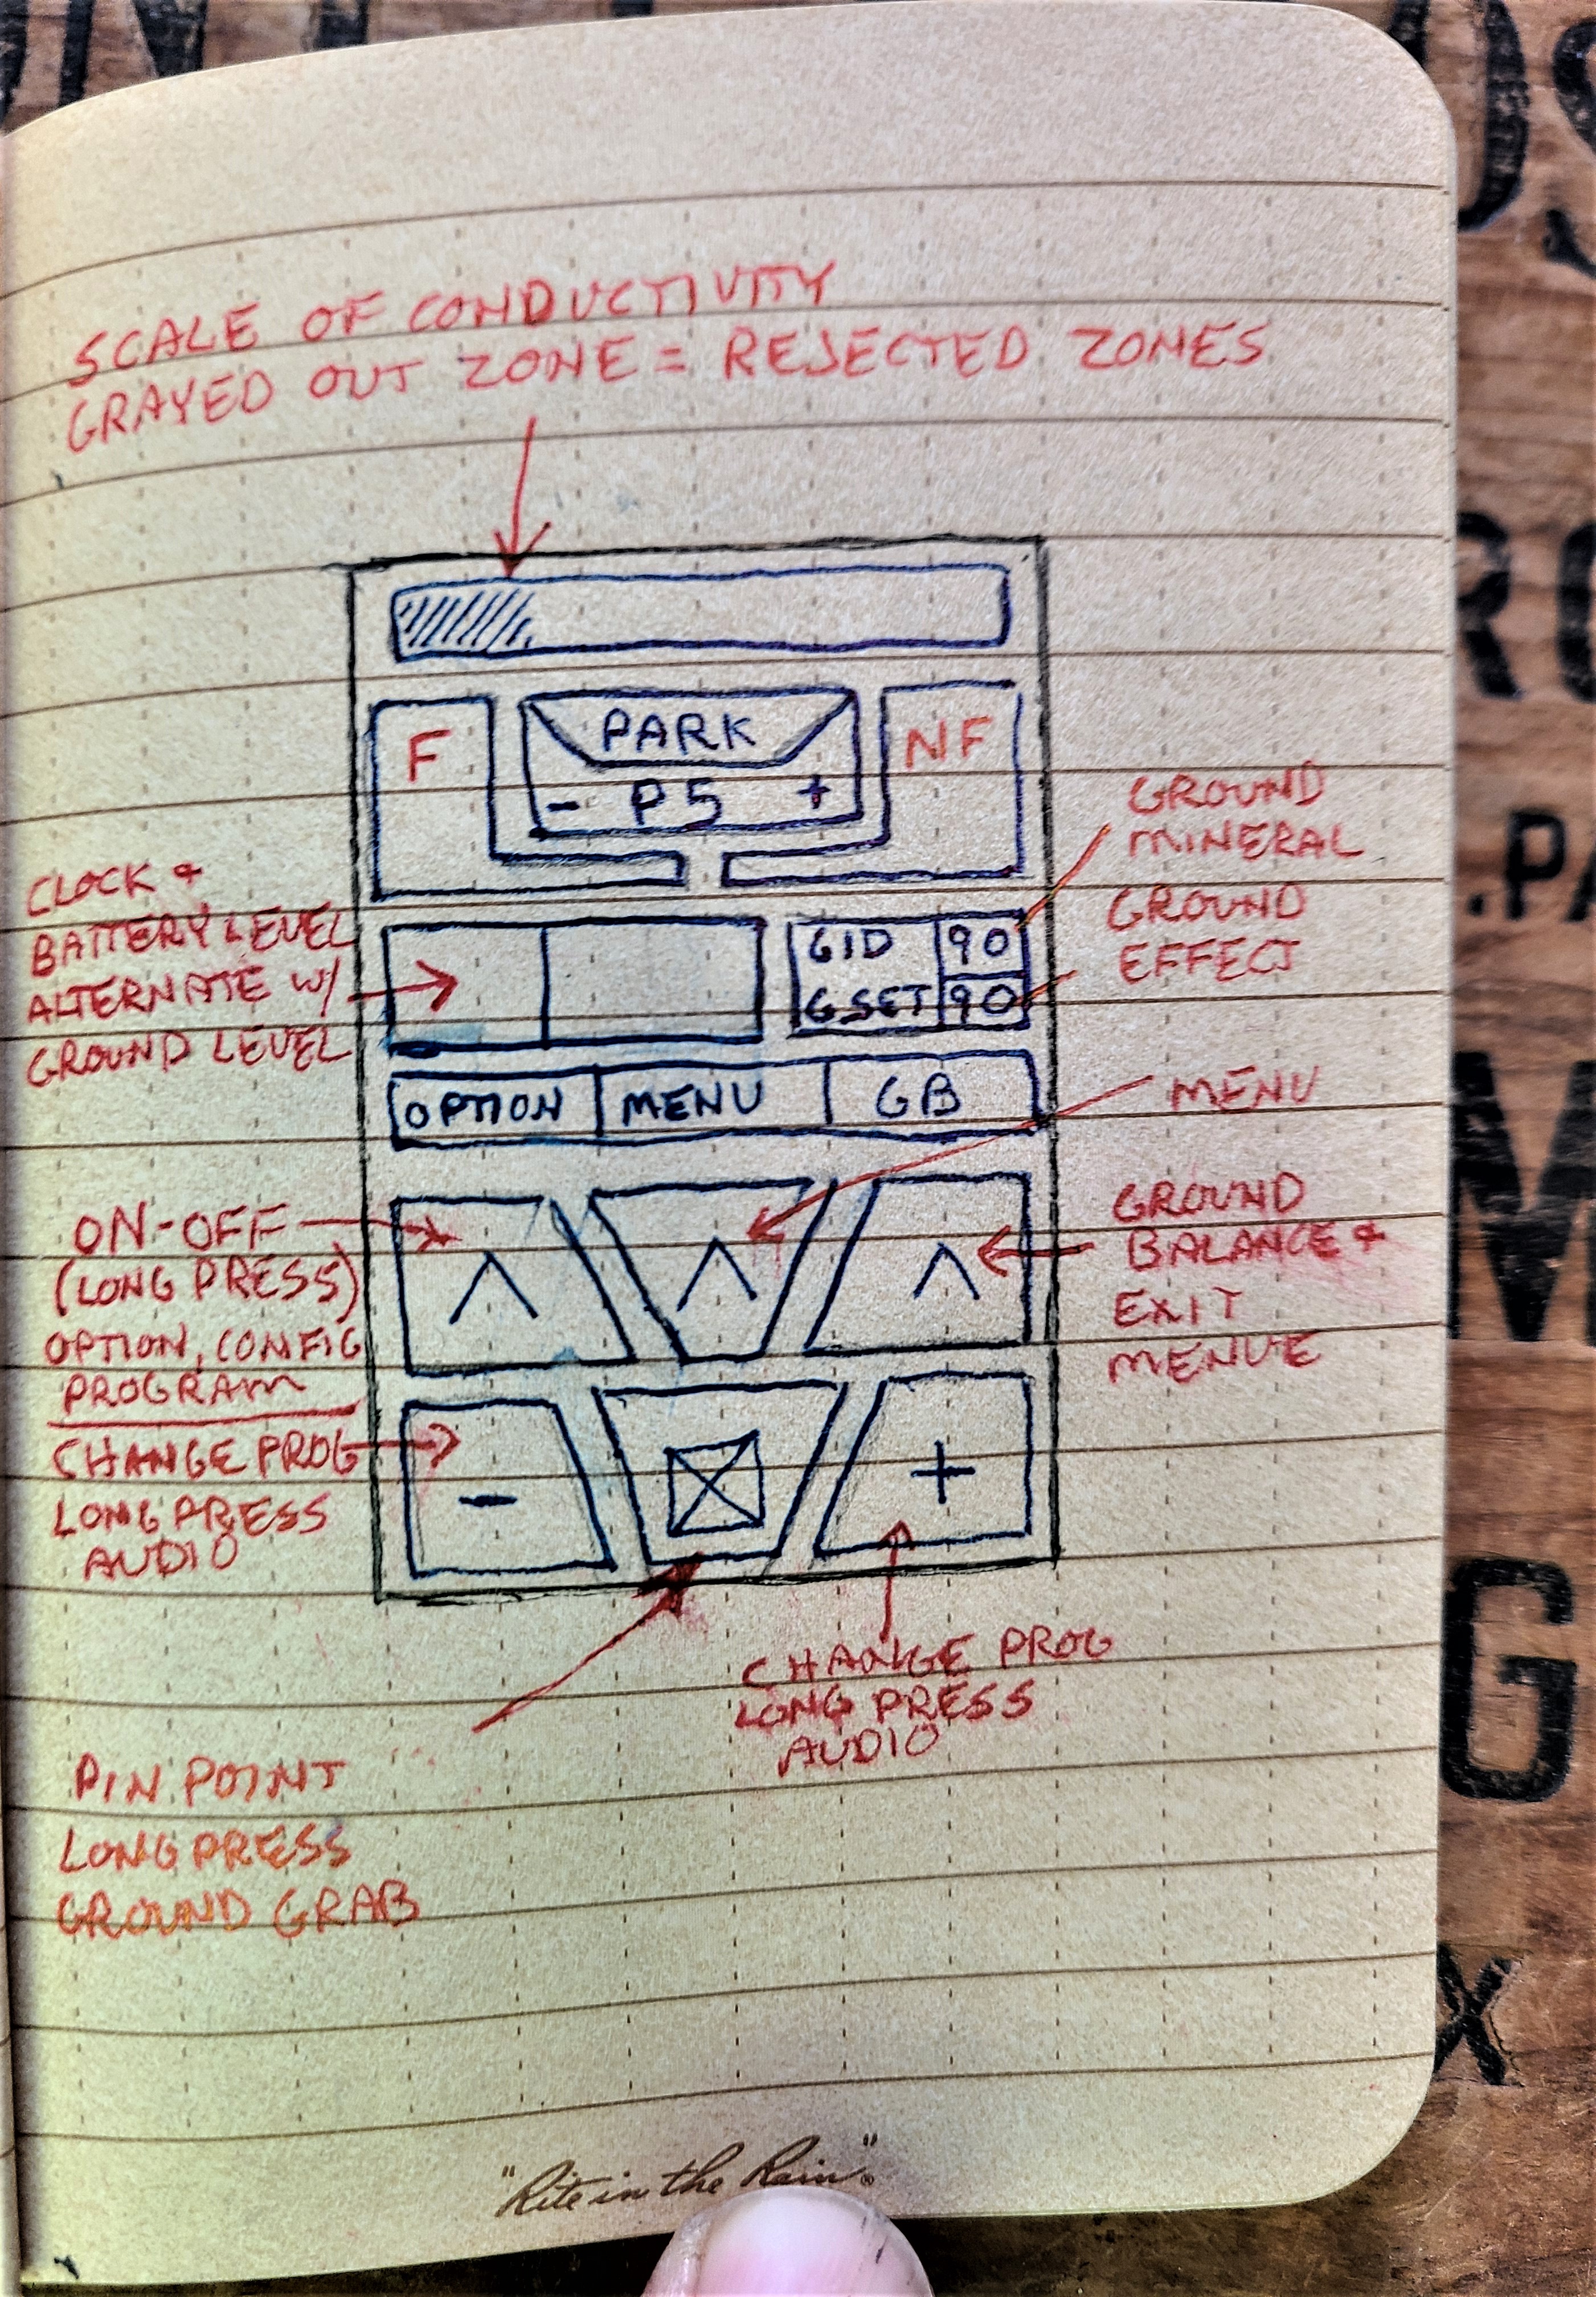 SCALE OF CONDUCTIVITY
GRAYED OUT ZONE = REJECTED ZONES
F
PARK
- P5 +
NF
GROUND
MINERAL
GROUND
EFFECT
CLOCK &
BATTERY LEVEL
ALTERNATE W/
GROUND LEVEL
GID 90
GSET 90
OPTION MENU GB
MENU
ON-OFF
(LONG PRESS)
OPTION, CONFIG
PROGRAM
GROUND
BALANCE &
EXIT
MENUE
CHANGE PROG
LONG PRESS
AUDIO
-
+
CHANGE PROG
LONG PRESS
AUDIO
PIN POINT
LONG PRESS
GROUND GRAB
"Rite in the Rain"®
.PA
G
X